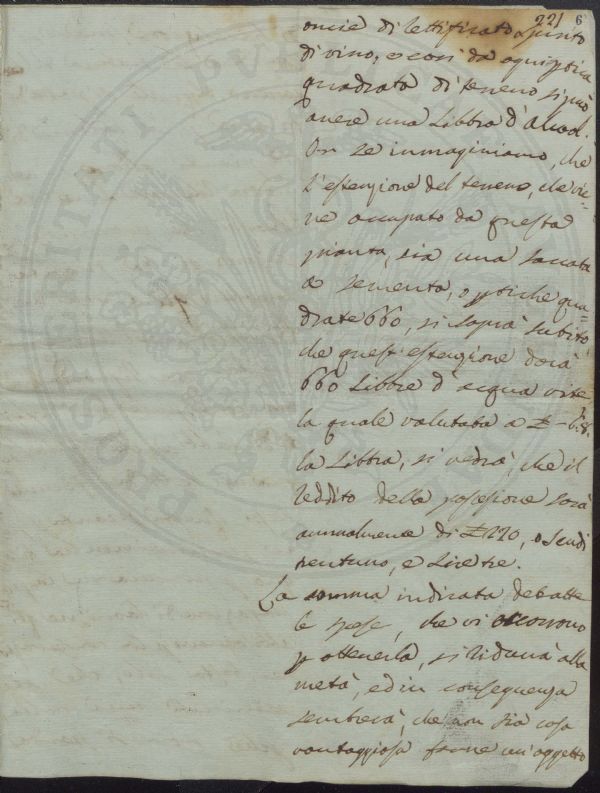 221 6
oncie di rettificato spirito
di vino; e così da ogni ptica
quadrata di terreno si può
avere una Libbra d'Alcool.
Or se immaginiamo, che
l'estenzione del terreno, che vie=
ne occupato da questa
pianta, sia una saccata
a sementa, o ptiche qua=
drate 660, si saprà subito
che quest'estenzione darà
660 Libbre d'acqua vite
la quale valutata a £ -6.8.
la Libbra, si vedrà, che il
reddito della possessione sarà
annualmente di £ 220, o Scudi
trentuno, e Lire tre.
La somma indicata debatte
le spese, che vi occorrono
p ottenerla, si ridurrà alla
metà, ed in conseguenza
sembrerà, che non sia cosa
vantaggiosa farne un'oggetto
PROSPERITATI PVBLICAE